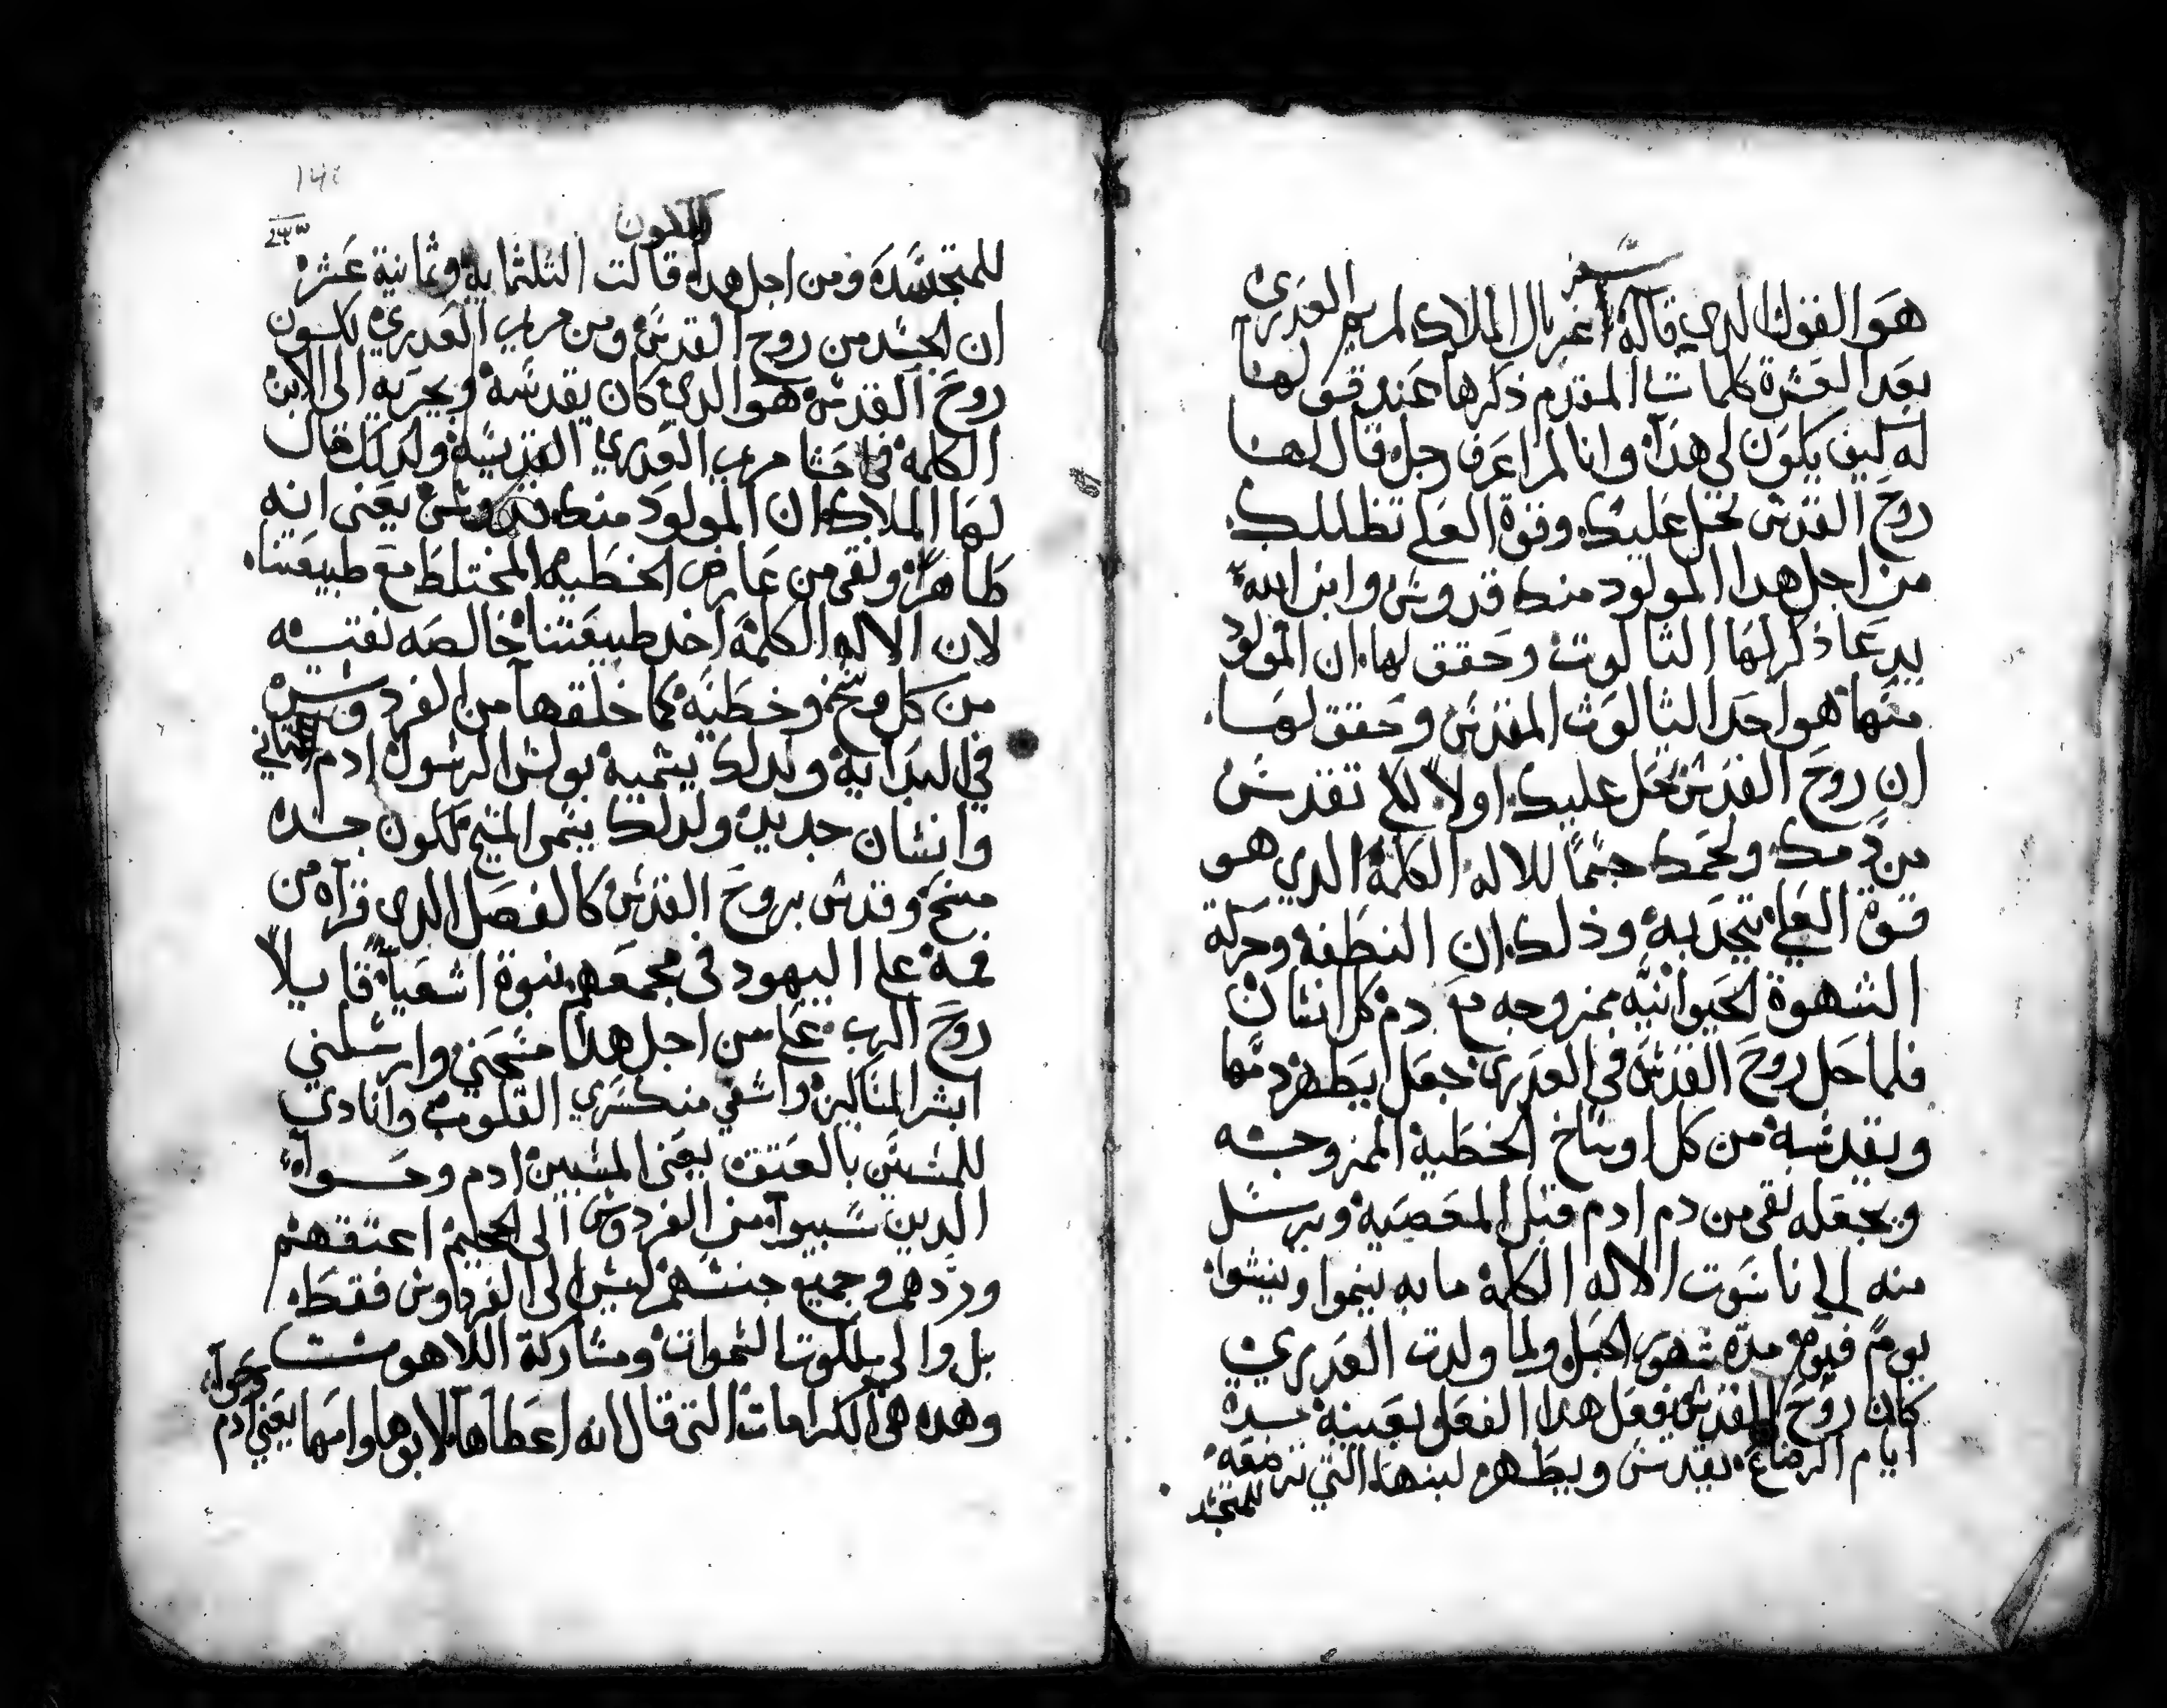 سفر
هو القول الدي قاله اغبريال الملاك لمريم العدري
بعد العشرة كلمات المقدم ذكرها عند قولها
له كيف يكون لي هذا وانا لم اعرف رجل قال لها
روح القدس تحل عليك وقوة العلي تظللك
من اجل هدا المولود منك قدوس وابن الله
ذكر لها التالوت وحقق لها ان المولود
منها هو احد التالوت المقدس وحقق لها
ان روح القدس تحل عليك اولا لكي تقدس
من دمك ولحمك جسما للاله الكلمة الدي هو
قوة العلي يتحد به وذلك ان النطفه وحركة
الشهوة الحيوانيه ممزوجه مع دم كل انسان
فلما حل روح القدس في العدري جعل يطهر دمها
ويقدسه من كل اوساخ الخطية الممزوجه
ويجعله نقي من دم ادم قبل المعصيه ويرسل
منه الي ناسوت الاله الكلمة ما به ينموا وينشوا
يوم فيوم مدة شهور الحبل ولما ولدت العدري
كان روح القدس يفعل هدا الفعل بعينه مدة
ايام الرضاع يقدس ويطهر لبنها التي ترضعه
للمتجسد
التكون
للمتجسده ومن اجل هدا قالت التلتمايه وتمانية عشر
ان الجسد من روح القدس ومن مريم العدري لكون
روح القدس هو الدي كان يقدسه ويجريه الى الابن
الكلمة في حشا مريم العدري القديسة ولدلك قال
لها الملاك ان المولود منك قدوس يعني انه
طاهر ونقي من عارض الخطيه المختلط مع طبيعتنا
لان الاله الكلمة اخد طبيعتنا خالصه نقيه
من كل وسخ وخطيه كما خلقها من الفردوس
في البداية ولدلك يسميه بولس الرسول ادم التاني
وانسان جديد ولدلك يسمى المسيح لكون جسده
مسح وقدس بروح القدس كالفصل الدي قراه من
فمه على اليهود في مجمعهم نبوة اشعيا قايلا
روح الرب علي من اجل هدا مسحني وارسلني
ابشر المساكين واشفي منكسري القلوب وانادي
للمسبيين بالعتق يعني المسبيين ادم وحوا
الدين سبيوا من الفردوس الى الجحيم اعتقهم
وردهم وجميع جنسهم ليس الى الفردوس فقط
بل والى ملكوت السموات ومشاركة اللاهوت
وهده هي الكرامات التي قال انه اعطاها لابوها وامها يعني ادم وحوا